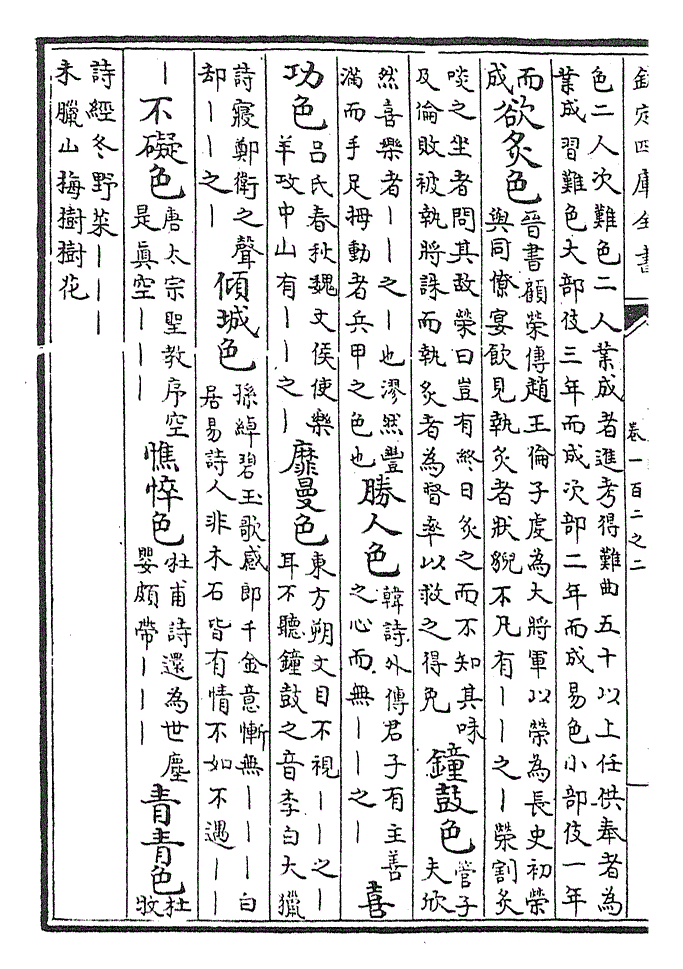 欽定四庫全書
卷一百二之二
色二人次難色二人業成者進考得難曲五十以上任供奉者為
業成習難色大部伎三年而成次部二年而成易色小部伎一年
而
成
欲炙色
晉書顧榮傳趙王倫子虔為大將軍以榮為長史初榮
與同僚宴飲見執炙者狀貌不凡有丨丨之丨榮割炙
啖之坐者問其故榮曰豈有終日炙之而不知其味
及倫敗被執將誅而執炙者為督率以救之得免
鐘鼓色
管子
夫欣
然喜樂者丨丨之丨也漻然豐
滿而手足拇動者兵甲之色也
勝人色
韓詩外傳君子有主善
之心而無丨丨之丨
喜
功色
呂氏春秋魏文侯使樂
羊攻中山有丨丨之丨
靡曼色
東方朔文目不視丨丨之丨
耳不聽鐘鼓之音李白大獵
詩寢鄭衛之聲
却丨丨之丨
傾城色
孫綽碧玉歌感郎千金意慚無丨丨丨白
居易詩人非木石皆有情不如不遇丨丨
丨
不礙色
唐太宗聖教序空
是真空丨丨丨
憔悴色
杜甫詩還為世塵
嬰頗帶丨丨丨
青青色
杜
牧
詩經冬野菜丨丨丨
未臘山梅樹樹花